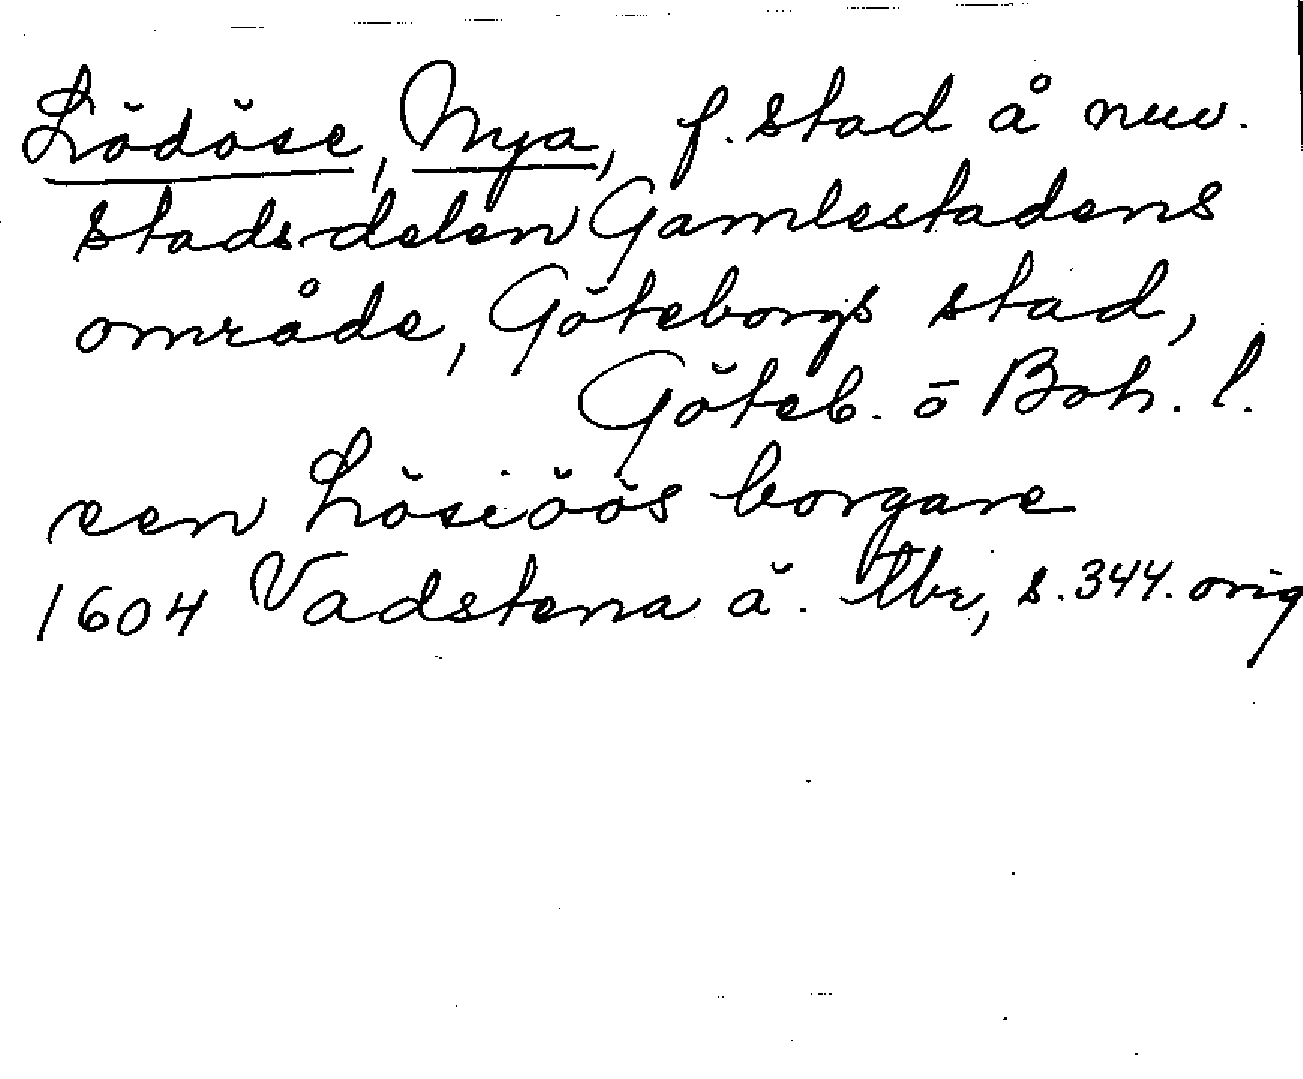 Lödöse, Nya, f. stad å nuv.
stadsdelen Gamlestadens
område, Göteborgs stad,
Göteb. o Boh. l.
een Lösiöös borgare
1604 Vadstena ä. tbr, s. 344. orig